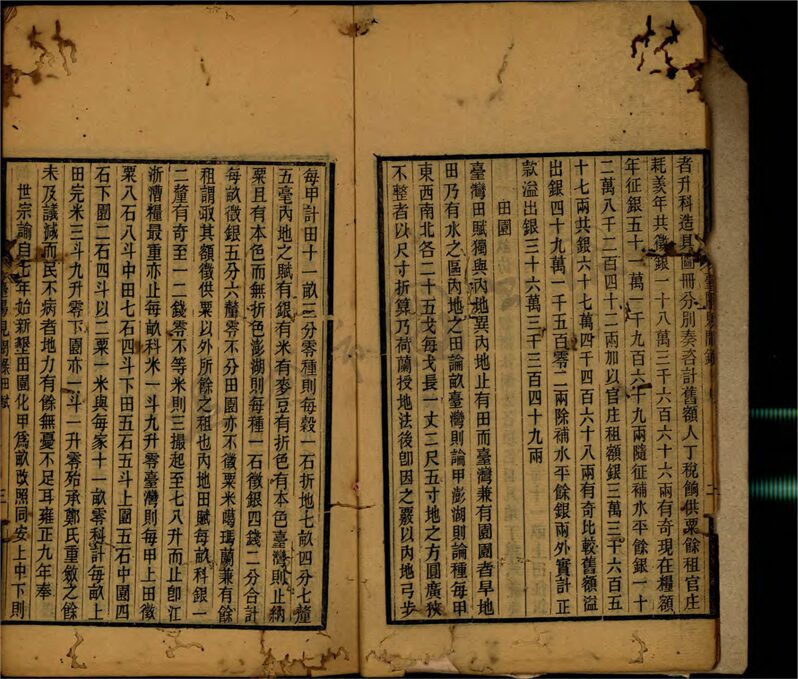 者升科造具圖冊分別奏咨計舊額人丁稅餉供粟餘租官庄
耗羨年共徵銀一十八萬三千六百六十六兩有奇現在糧額
年征銀五十一萬一千九百六十九兩隨征補水平餘銀一十
二萬八千二百四十二兩加以官庄租額銀三萬三千六百五
十七兩共銀六十七萬四千四百六十八兩有奇比較舊額溢
出銀四十九萬一千五百零二兩除補水平餘銀兩外實計正
款溢出銀三十六萬三千三百四十九兩
田園
臺灣田賦獨與內地異內地止有田而臺灣兼有園園者旱地
田乃有水之區內地之田論畝臺灣則論甲澎湖則論種每甲
東西南北各二十五戈每戈長一丈二尺五寸地之方圓廣狹
不整者以尺寸折算乃荷蘭授地法後卽因之覈以內地弓步
每甲計田十一畝三分零種則每穀一石折地七畝四分七釐
五毫內地之賦有銀有米有麥豆有折色有本色臺灣則止納
粟且有本色而無折色澎湖則每種一石徵銀四錢二分合計
每畝徵銀五分六釐零不分田園亦不徵粟米噶瑪蘭兼有餘
租謂取其額徵供粟以外所餘之租也內地田賦每畝科銀一
二釐有奇至一二錢零不等米則三撮起至七八升而止卽江
浙漕糧最重亦止每畝科米一斗九升零臺灣則每甲上田徵
粟八石八斗中田七石四斗下田五石五斗上園五石中園四
石下園二石四斗以二粟一米與每家十一畝零科計每畝上
田完米三斗九升零下園亦一斗一升零殆承鄭氏重斂之餘
未及議減而民不病者地力有餘無憂不足耳雍正九年奉
世宗諭自七年始新墾田園化甲爲畝改照同安上中下則
臺陽見聞錄
田賦
三